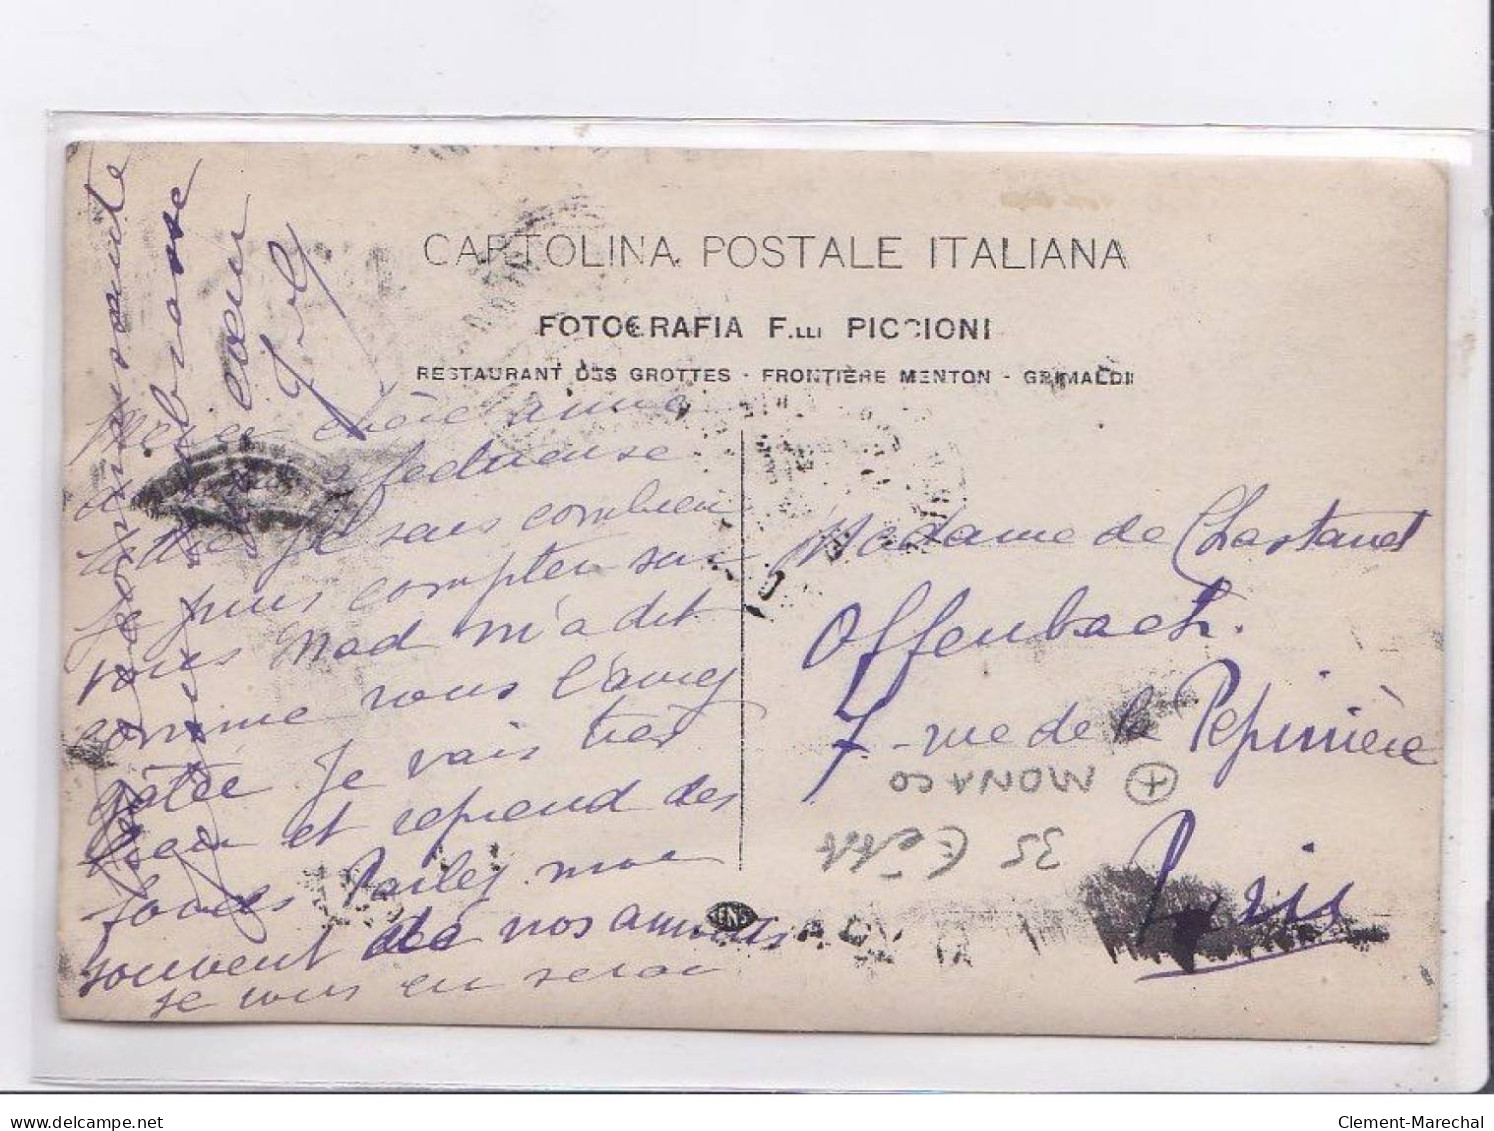 CARTOLINA POSTALE ITALIANA
FOTOGRAFIA F.LLI PICCIONI
RESTAURANT DES GROTTES - FRONTIÈRE MENTON - GRIMALDI
Merci chère amie
de affectueuse
lettre je sais combien
je puis compter sur
vous Mad m'a dit
comme vous l'avez
gâtée Je vais très
et reprend des
forces Parlez moi
souvent de nos
je vous en serai
embrasse
coeur
Madame de Chastanet
Offenbach.
7 rue de la Pepinière
Paris
MONACO
35
delcampe.net
Clement-Marechal